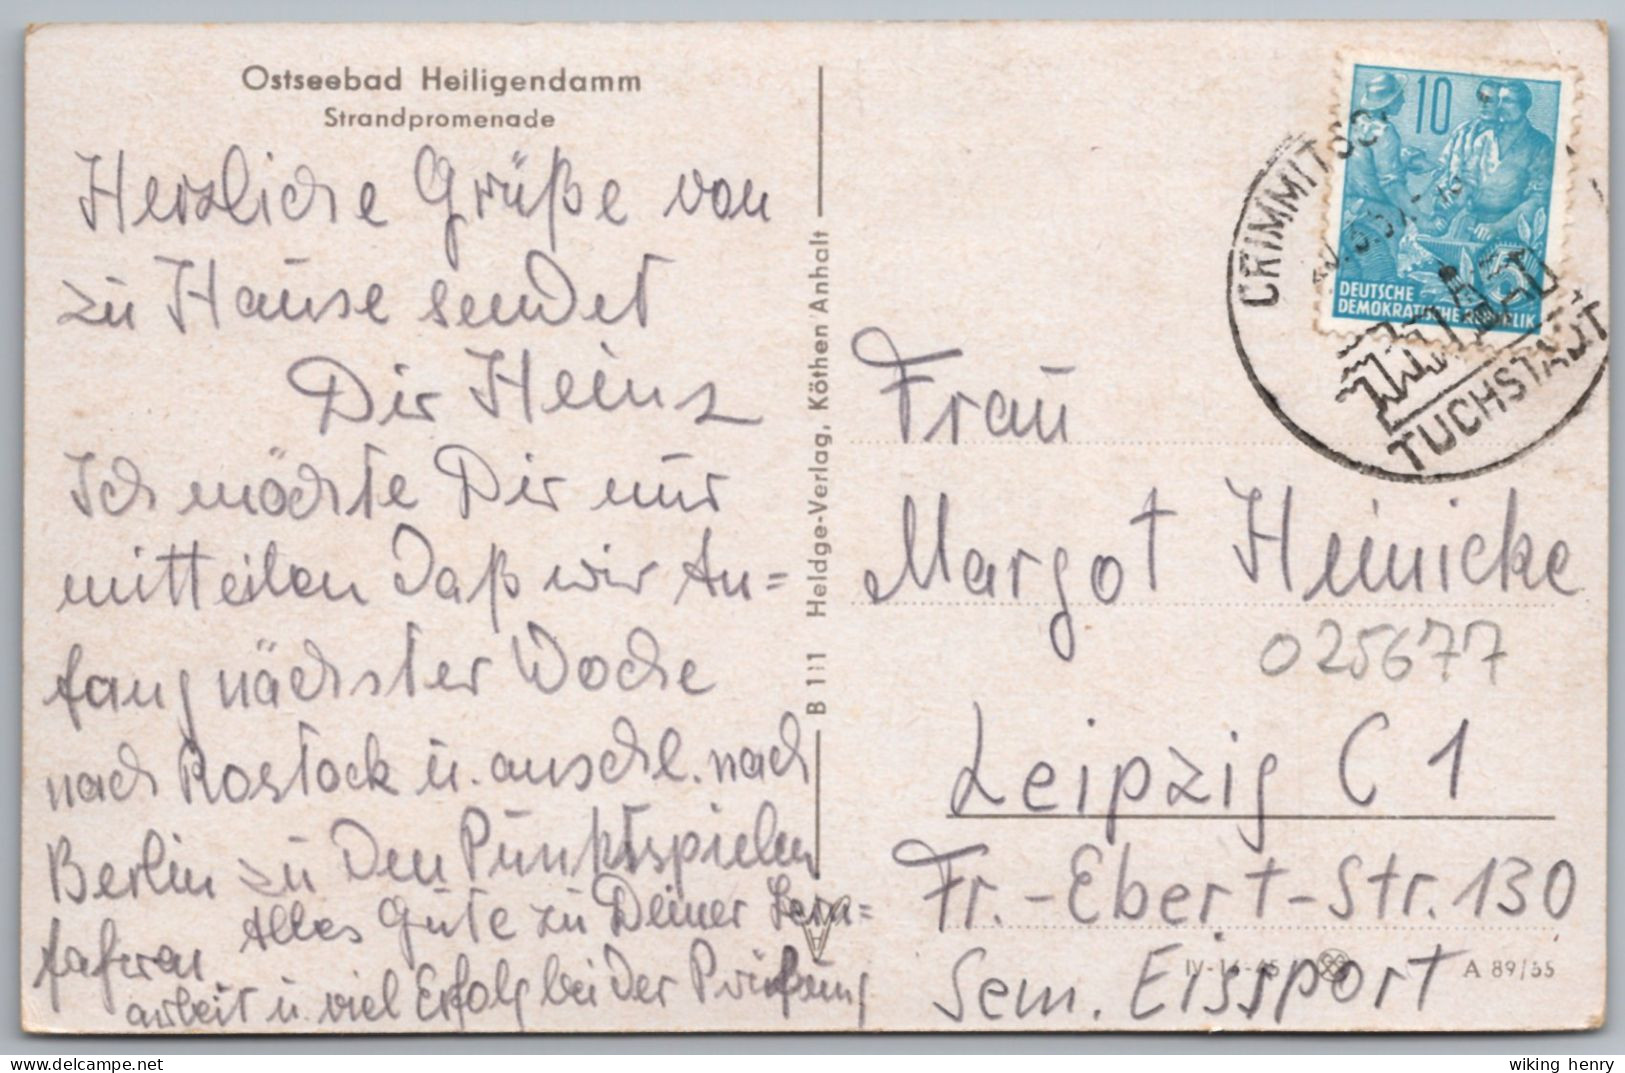 Ostseebad Heiligendamm
Strandpromenade
Herzliche Grüße von
zu Hause sendet
Dir Heinz
Ich möchte Dir nur
mitteilen daß wir An=
fang nächster Woche
nach Rostock u. anschl. nach
Berlin zu den Punktspielen
fahren Alles Gute zu Deiner Lern=
arbeit u. viel Erfolg bei der Prüfung
B 111 Heldge-Verlag, Köthen/Anhalt
10
DEUTSCHE
DEMOKRATISCHE REPUBLIK
TUCHSTADT
Frau
Margot Heinicke
025677
Leipzig C 1
Fr.-Ebert-Str. 130
Sem. Eissport
IV-14-45 A 89/55
delcampe.net
wiking henry